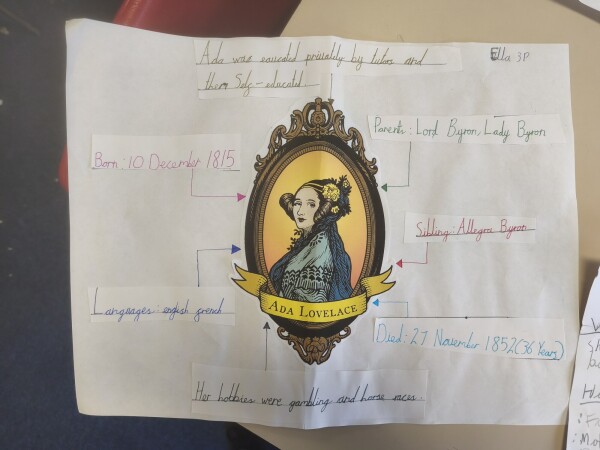 Ada was educated privately by tutors and
then Self-educated
Ella 3P
Parents: Lord Byron, Lady Byron
Born: 10 December 1815
Sibling: Allegra Byron
ADA LOVELACE
Languages: english french
Died: 27 November 1852 (36 Years)
Her hobbies were gambling and horse races.